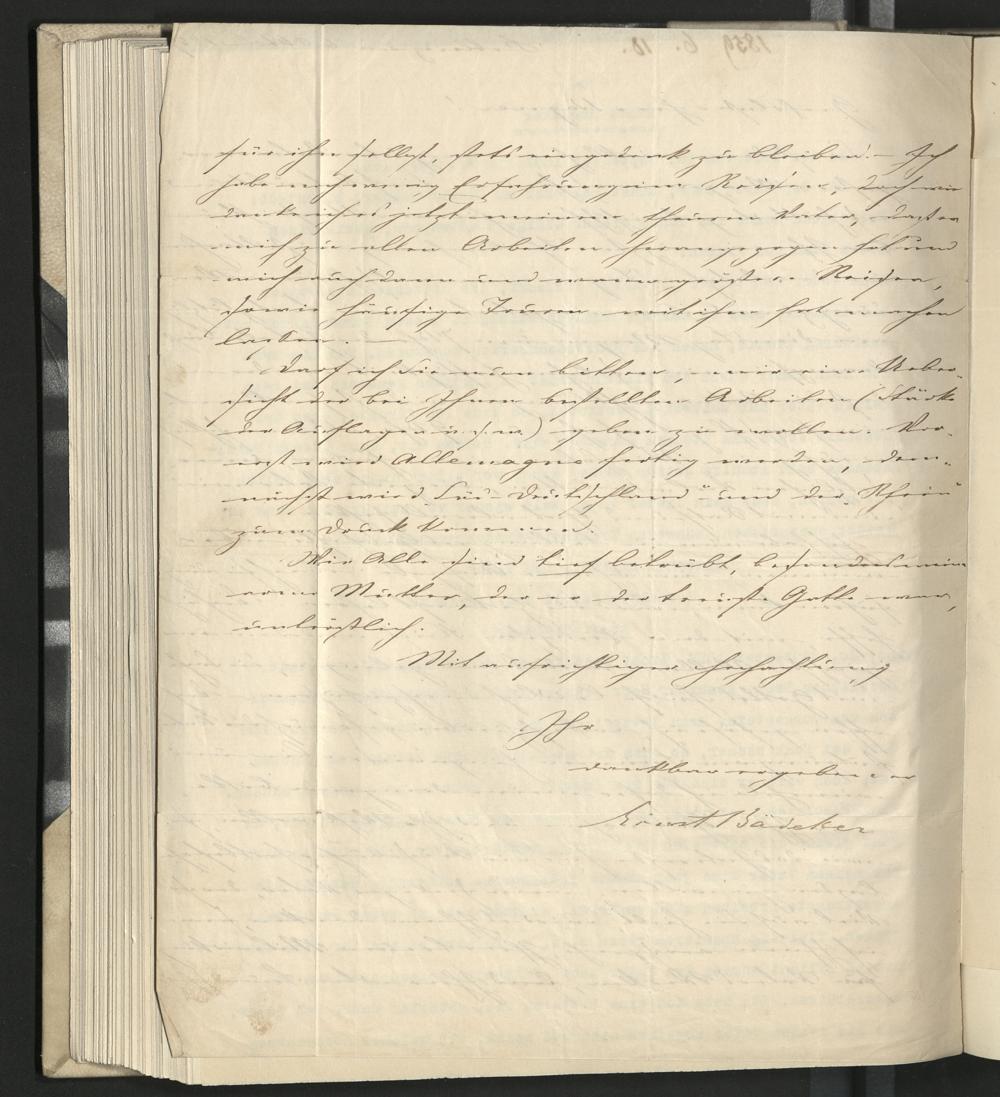 für ihn selbst, stets eingedenk zu bleiben. – Ich
habe noch wenig Erfahrung im Reisen, doch wie
danke ich es jetzt meinem theuren Vater, daß er
mich zu allen Arbeiten herangezogen hat und
mich auch dann und wann größere Reisen,
sowie häufige Touren mit ihm hat machen
lassen. –
Darf ich Sie nun bitten, mir eine Ueber-
sicht der bei Ihnen bestellten Arbeiten (Stärke
der Auflagen u. s. w.) geben zu wollen. Vor-
erst wird Allemagne fertig werden, dem-
nächst wird „Süd-Deutschland" und der „Rhein"
zum Druck kommen.
Wir Alle sind tief betrübt, besonders meine
arme Mutter, der er der treuste Gatte war,
untröstlich.
Mit aufrichtiger Hochachtung
Ihr
dankbar ergebener
Ernst Bädeker
1859 6. 10.